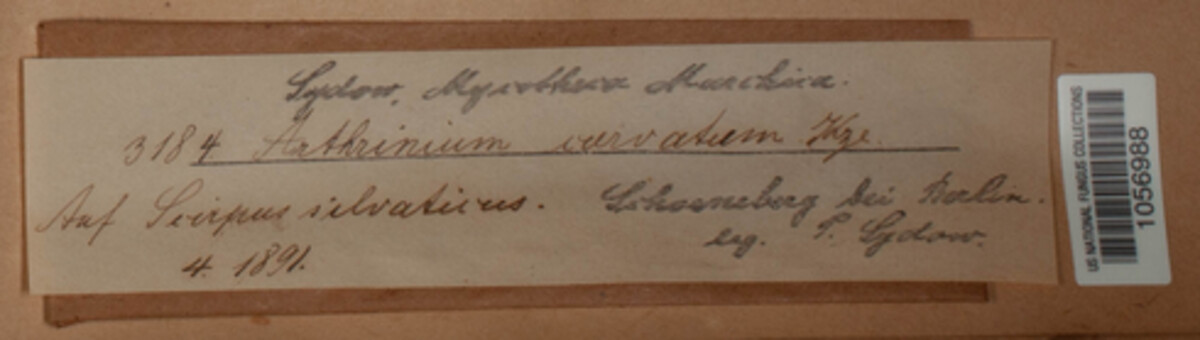 Sydow, Mycotheca Marchica.
3184 Arthrinium curvatum Kze.
Auf Scirpus silvaticus. Schoeneberg bei Berlin.
4. 1891. leg. P. Sydow.
US NATIONAL FUNGUS COLLECTIONS
1056988